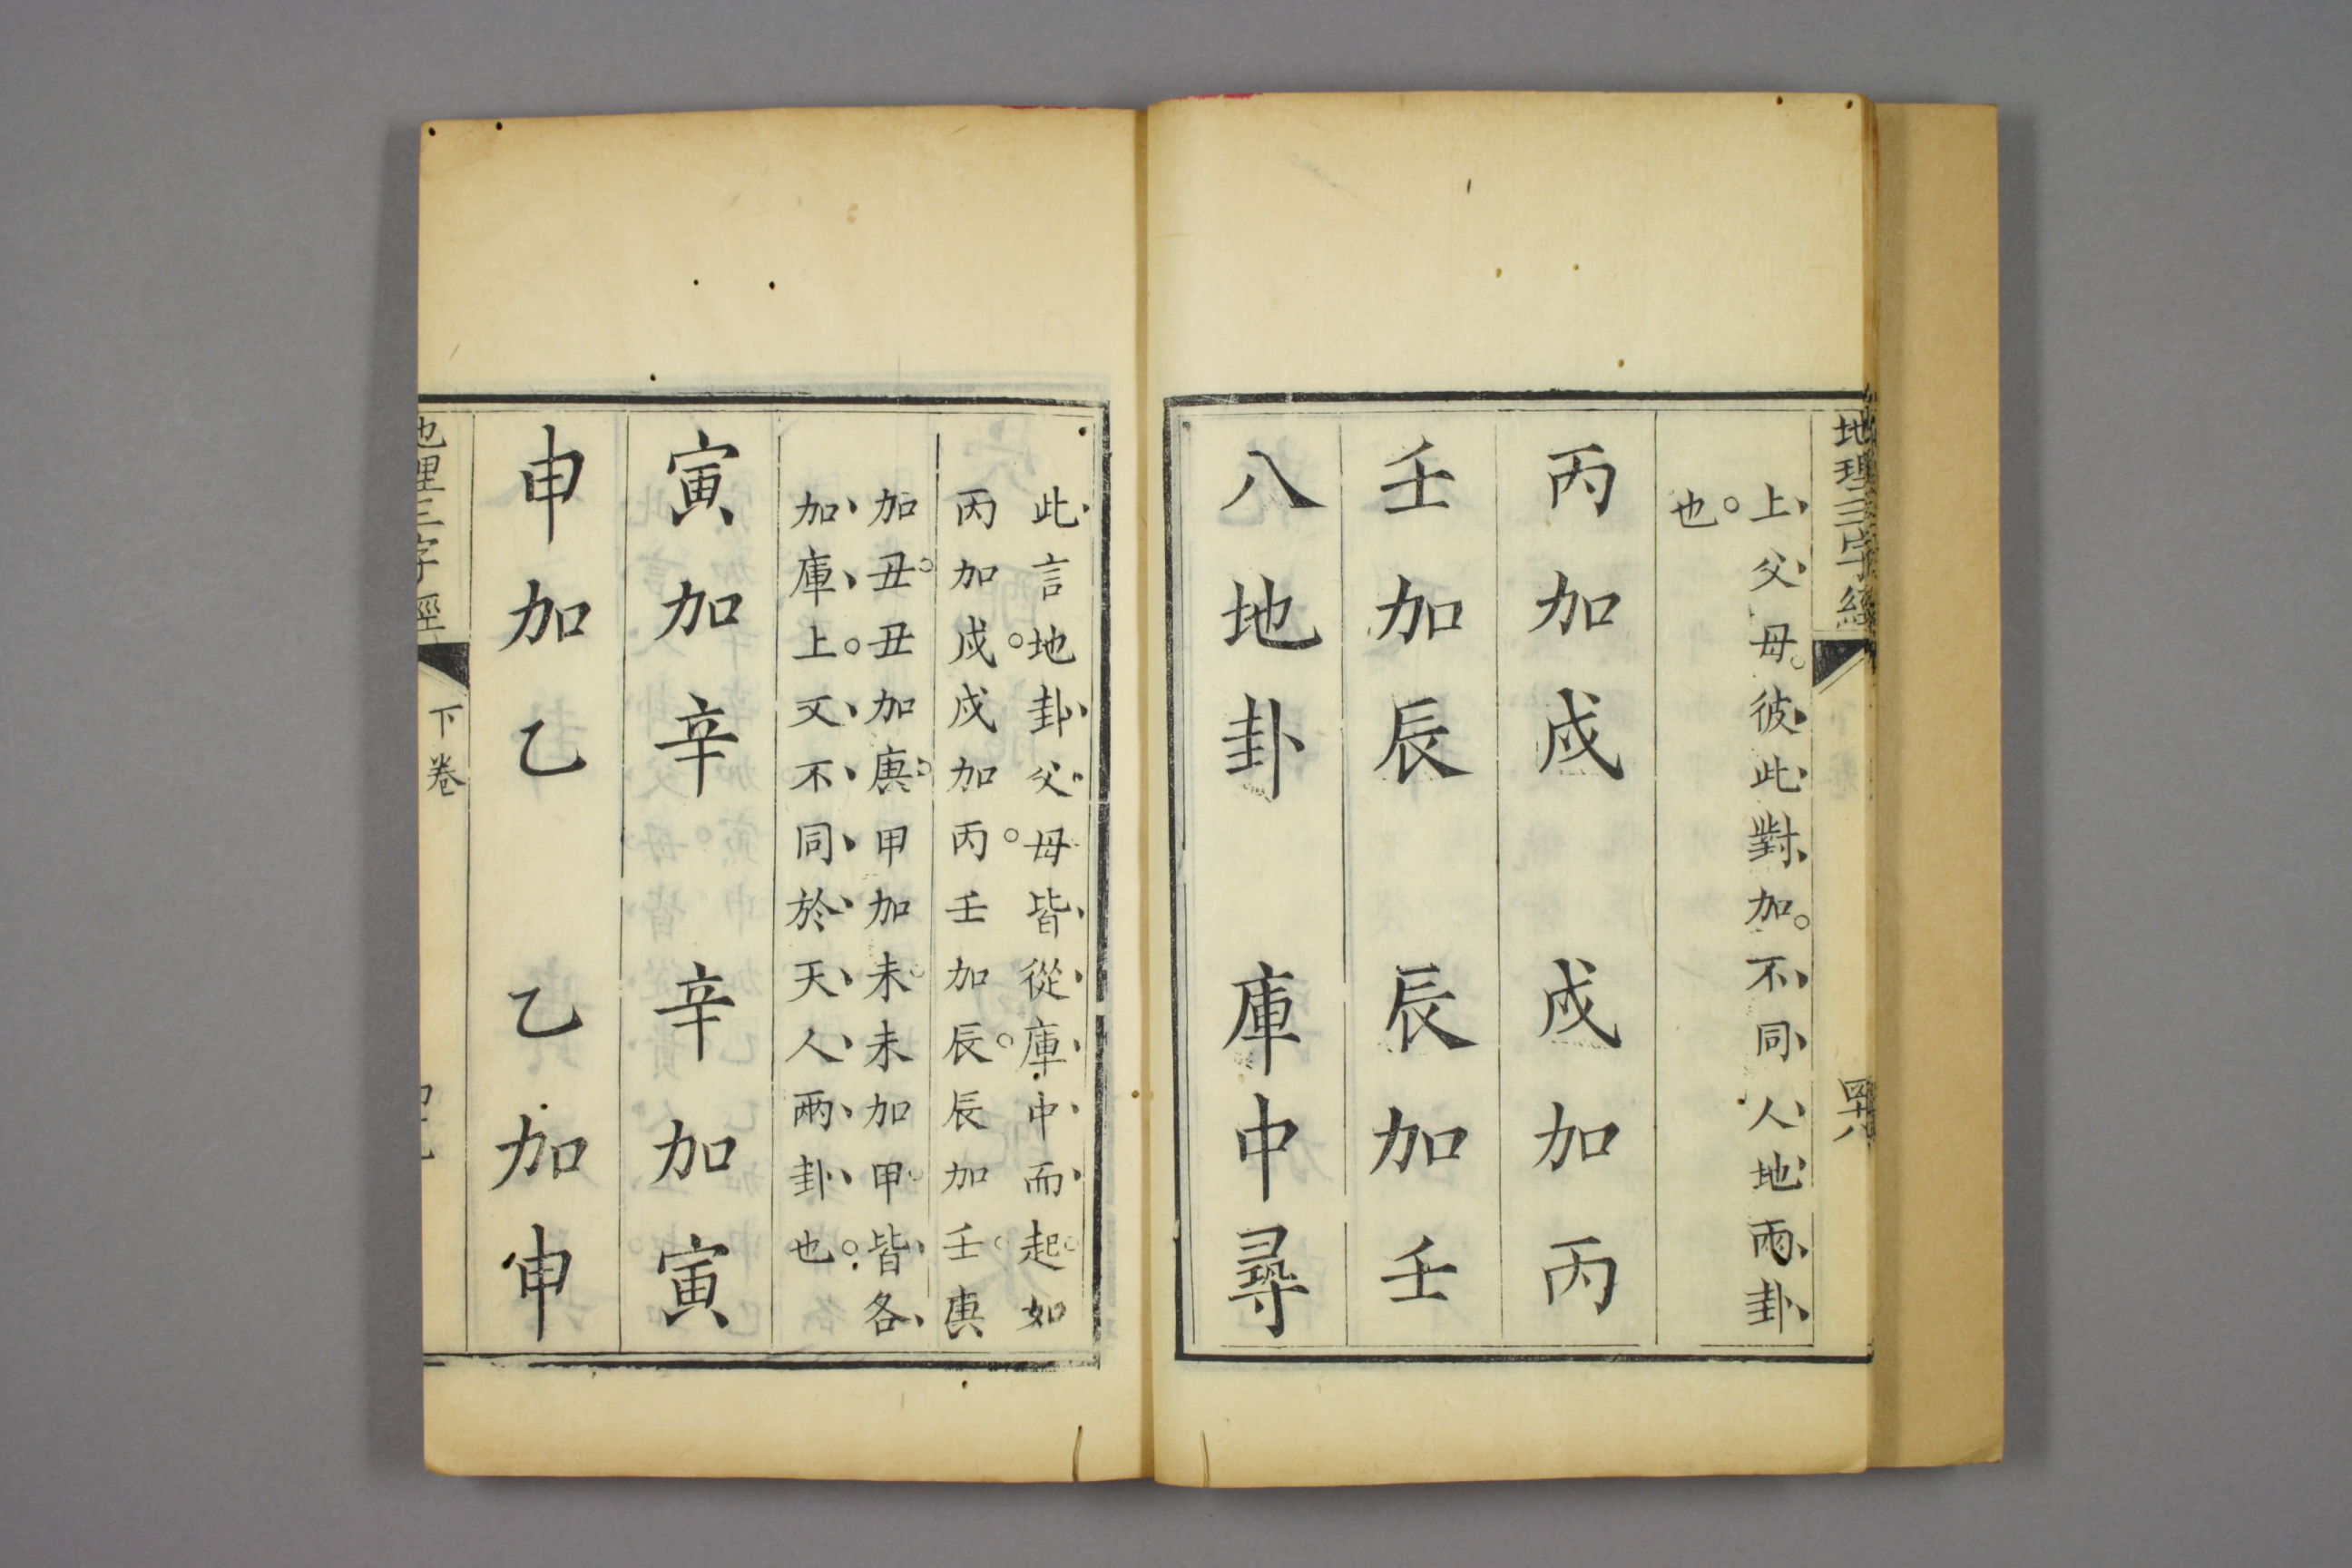 地理三字經
四十八
上父母。彼此對加。不同人地兩卦
也。
丙加戌 戌加丙
壬加辰 辰加壬
八地卦 庫中尋
此言地卦父母皆從庫中而起。如
丙加戌。戌加丙。壬加辰。辰加壬。庚
加丑。丑加庚。甲加未。未加甲。皆各
加庫上。又不同於天人兩卦也。
寅加辛 辛加寅
申加乙 乙加申
地理三字經
下卷